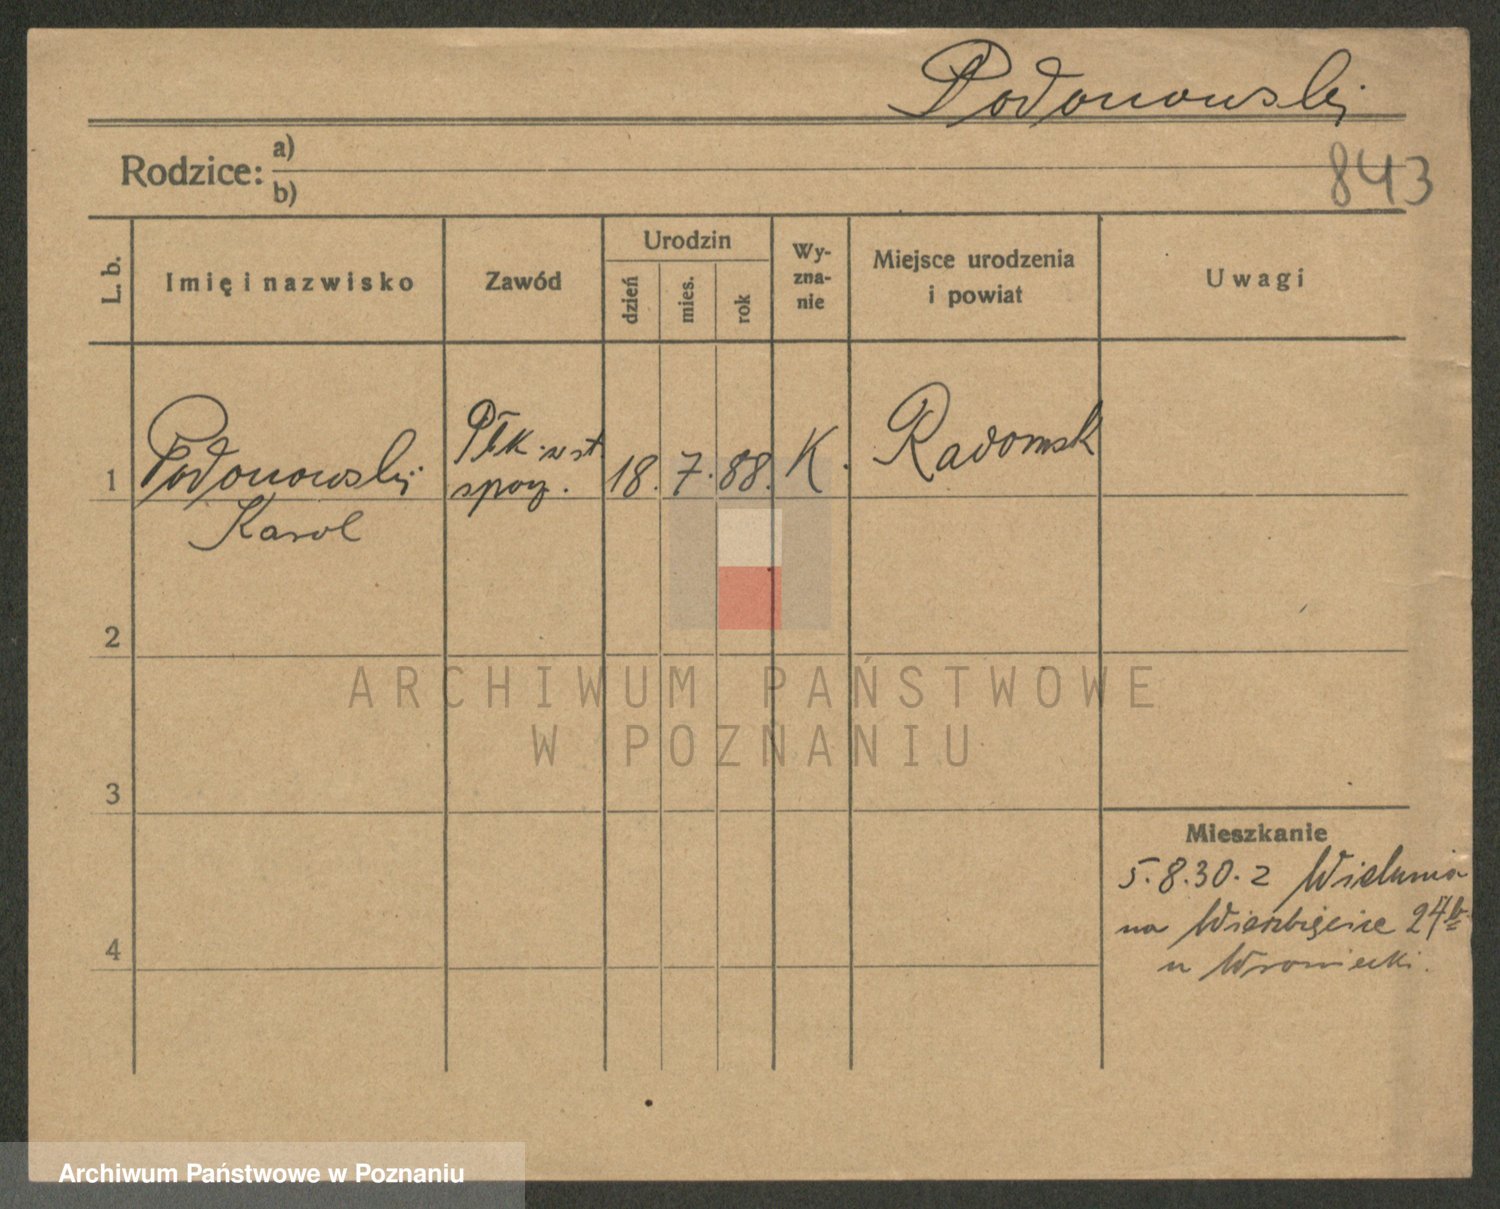 Podonowski
Rodzice: a)
b)
843
L. b.
Imię i nazwisko
Zawód
Urodzin
dzień
mies.
rok
Wy-
zna-
nie
Miejsce urodzenia
i powiat
Uwagi
1
Podonowski
Karol
Płk. w st.
spocz.
18. 7. 88.
K.
Radomsk
2
ARCHIWUM PAŃSTWOWE
W POZNANIU
3
Mieszkanie
5.8.30. z Wielunia
na Wierzbięcice 24b
u Wroniecki.
4
Archiwum Państwowe w Poznaniu